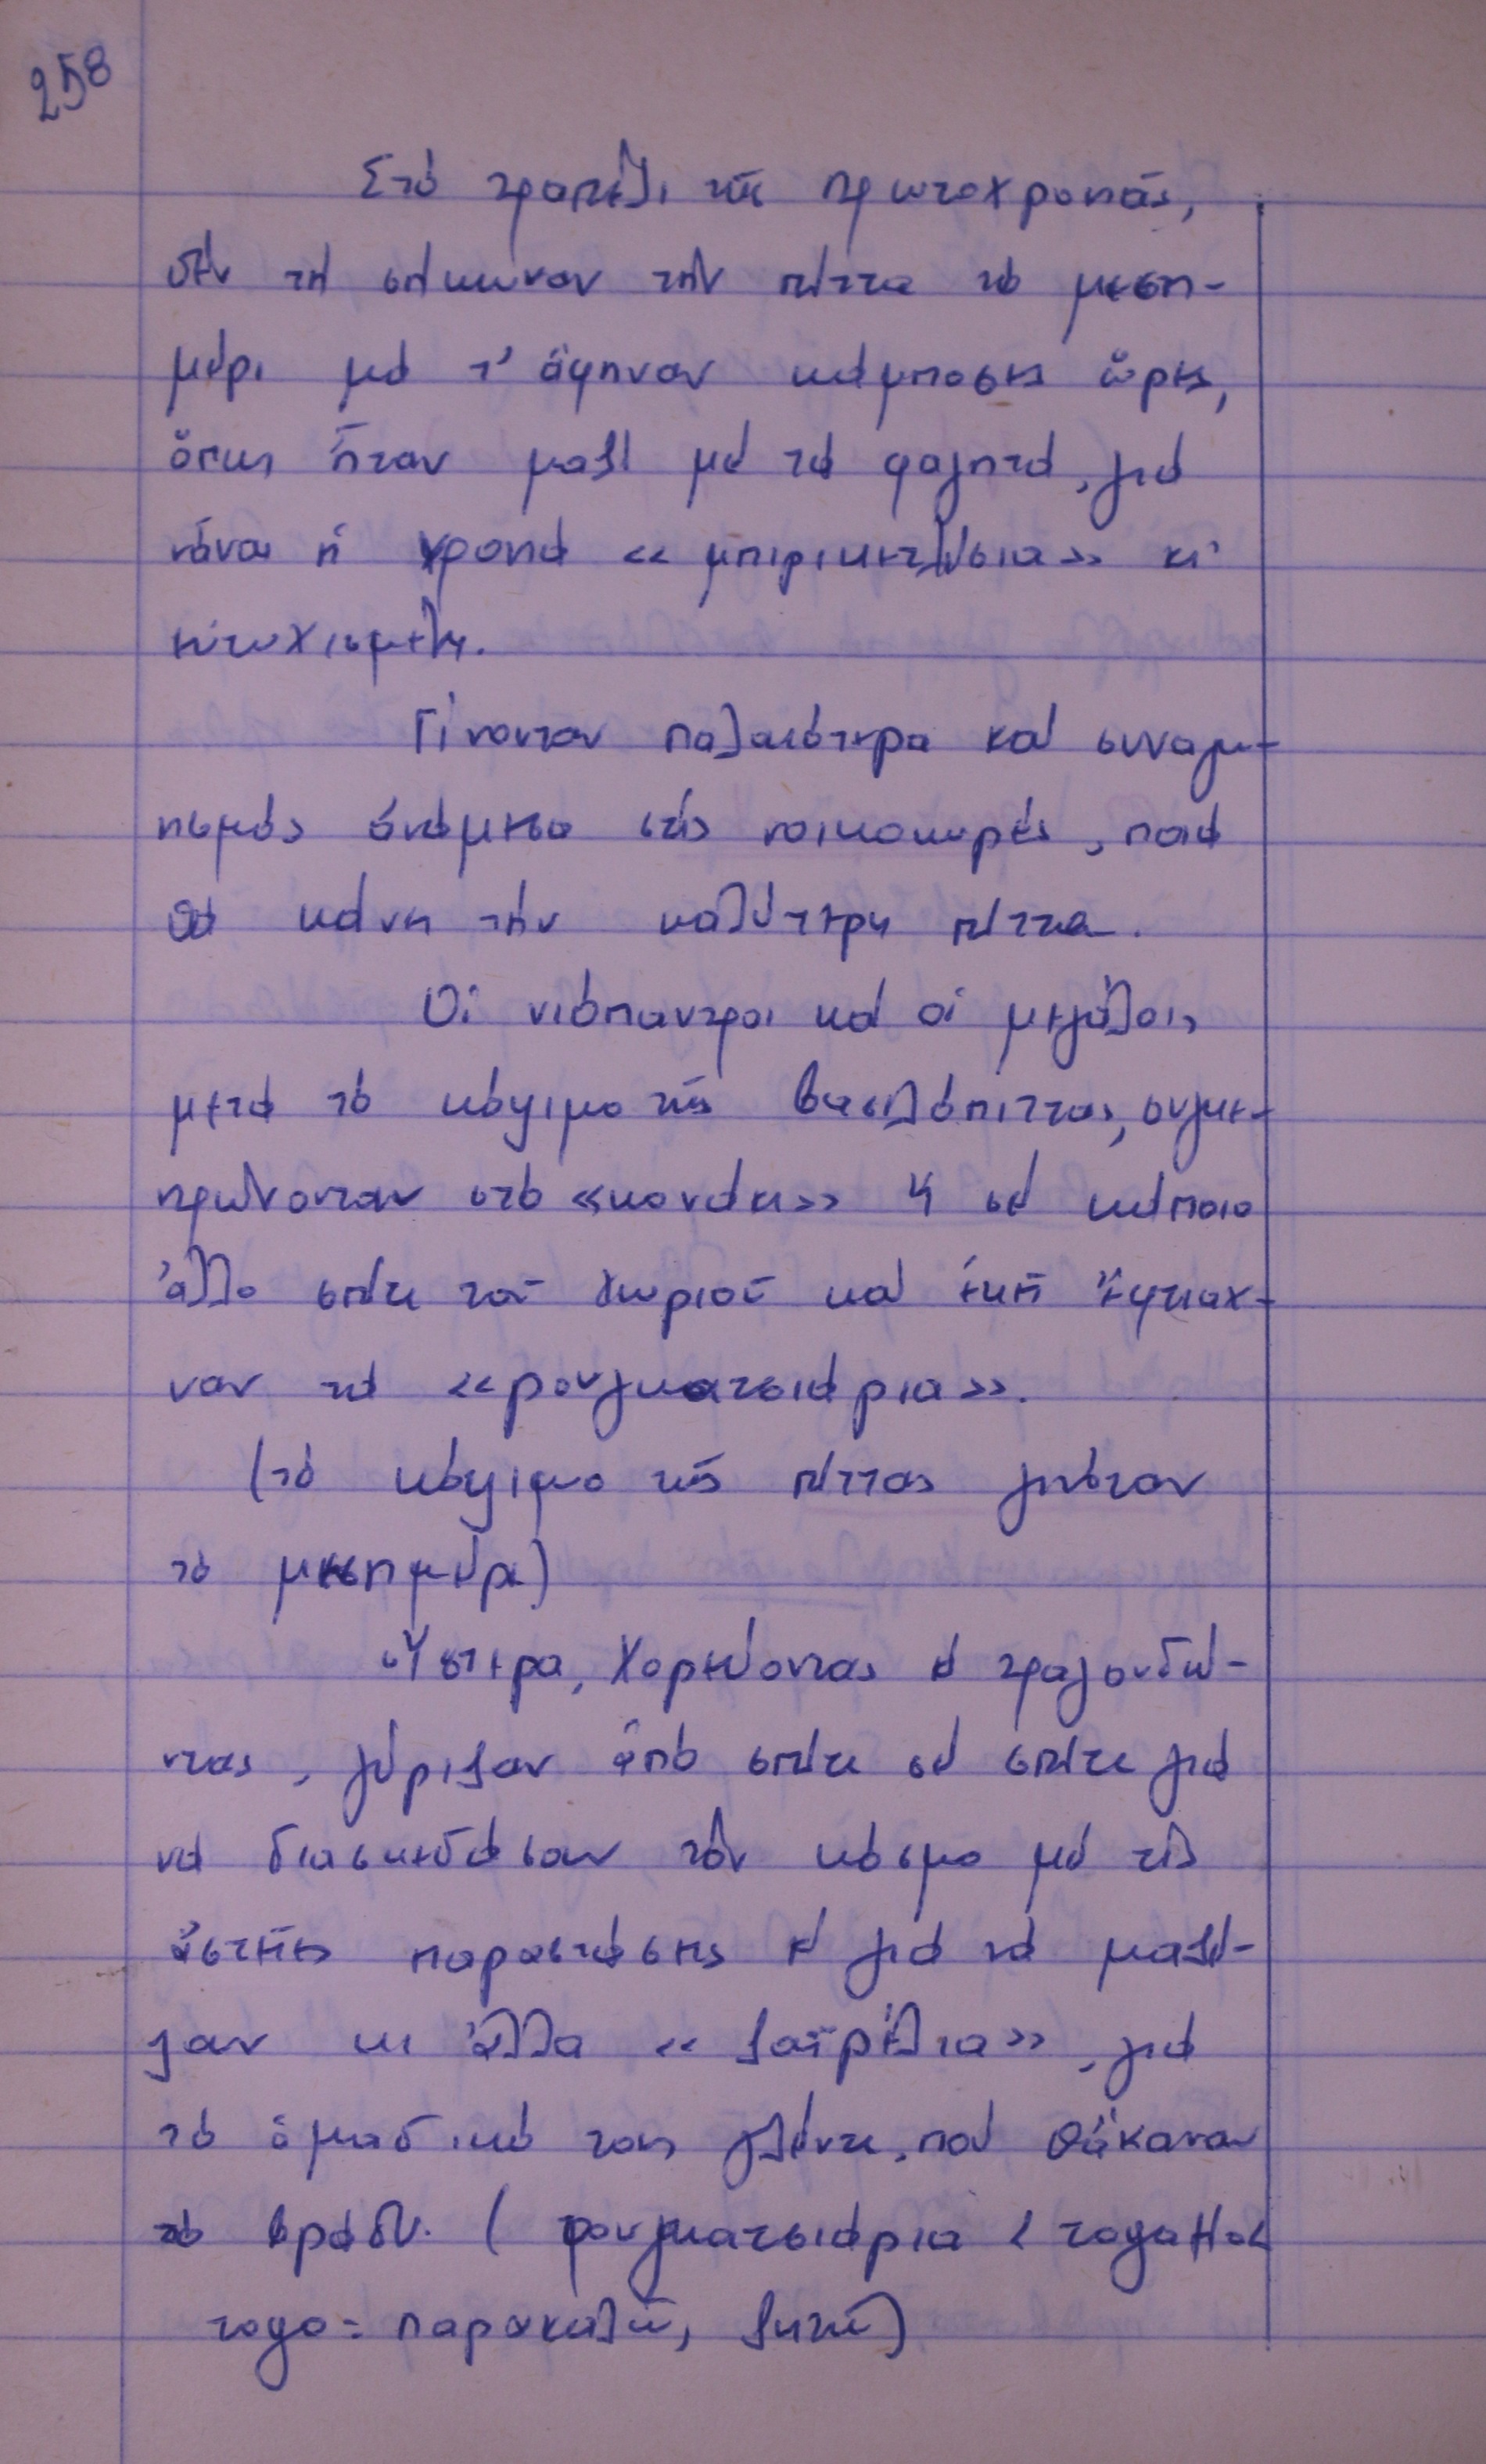 258
Στό τραπέζι τῆς πρωτοχρονιᾶς,
δέν τή σήκωναν τήν πίττα τό μεση-
μέρι μά τ' ἄφηναν κάμποσες ὧρες,
ὅπως ἦταν μαζί μέ τά φαγητά, γιά
νάναι ἡ χρονιά « μπιρικετλίσια » κι'
εὐτυχισμένη.
Γίνονταν παλαιότερα καί συναγω-
νισμός ἀνάμεσα στίς νοικοκυρές, ποιά
θά κάνη τήν καλύτερη πίττα.
Οἱ νιόπαντροι καί οἱ μεγάλοι,
μετά τό κόψιμο τῆς βασιλόπιττας, συγκε-
ντρώνονταν στό «κονάκι» ἤ σέ κάποιο
ἄλλο σπίτι τοῦ χωριοῦ καί ἐκεῖ ἔφτιαχ-
ναν τά «ρουγκατσιάρια».
(τό κόψιμο τῆς πίττας γινόταν
τό μεσημέρι)
Ὕστερα, χορεύοντας κ τραγουδώ-
ντας, γύριζαν ἀπό σπίτι σέ σπίτι γιά
νά διασκεδάσουν τόν κόσμο μέ τίς
ἀστεῖες παραστάσεις κ γιά νά μαζέ-
ψαν κι ἄλλα « ζαϊρέλια », γιά
τό ὁμαδικό τους γλέντι, πού θἄκαναν
τό βράδυ. ( ρουγκατσιάρια <
= παρακαλῶ, ζητῶ)